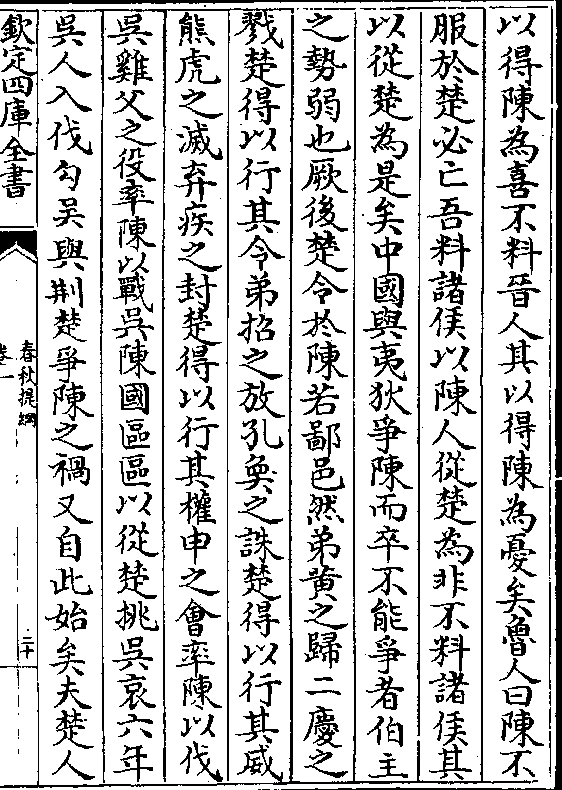 以得陳為喜不料晉人其以得陳為憂矣魯人曰陳不
服於楚必亡吾料諸侯以陳人從楚為非不料諸侯其
以從楚為是矣中國與夷狄爭陳而卒不能爭者伯主
之勢弱也厥後楚令於陳若鄙邑然弟黄之歸二慶之
戮楚得以行其令弟招之放孔奐之誅楚得以行其威
熊虎之滅弃疾之封楚得以行其權申之會率陳以伐
吳雞父之役率陳以戰吳陳國區區以從楚挑吳哀六年
吳人入伐勾吳與荆楚爭陳之禍又自此始矣夫楚人
欽定四庫全書
春秋提綱
卷一
二十